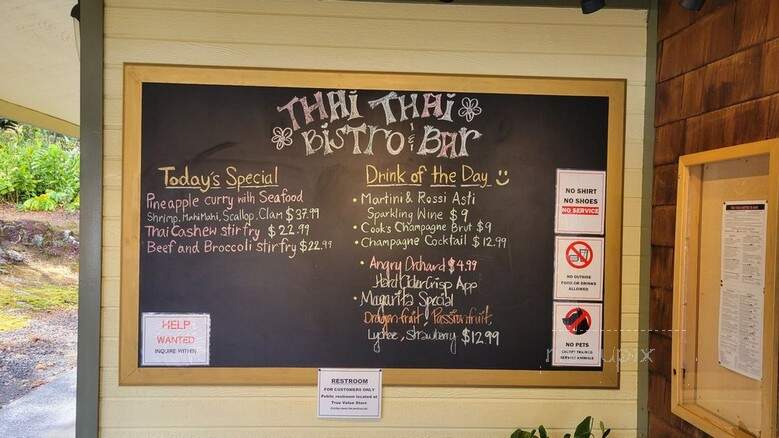 THAI THAI
BISTRO & BAR
Today's Special
Pineapple curry with Seafood
Shrimp, MahiMahi, Scallop, Clam $37.99
Thai Cashew stir fry $22.99
Beef and Broccoli stir fry $22.99
Drink of the Day
• Martini & Rossi Asti
Sparkling Wine $9
• Cook's Champagne Brut $9
• Champagne Cocktail $12.99
• Angry Orchard $4.99
Hard Cider Crisp App
• Magarita Special
Dragonfruit, Passionfruit,
Lychee, Strawberry $12.99
NO SHIRT
NO SHOES
NO SERVICE
NO OUTSIDE
FOOD OR DRINKS
ALLOWED
NO PETS
EXCEPT TRAINED
SERVICE ANIMALS
HELP
WANTED
INQUIRE WITHIN
RESTROOM
FOR CUSTOMERS ONLY
Public restroom located at
True Value Store